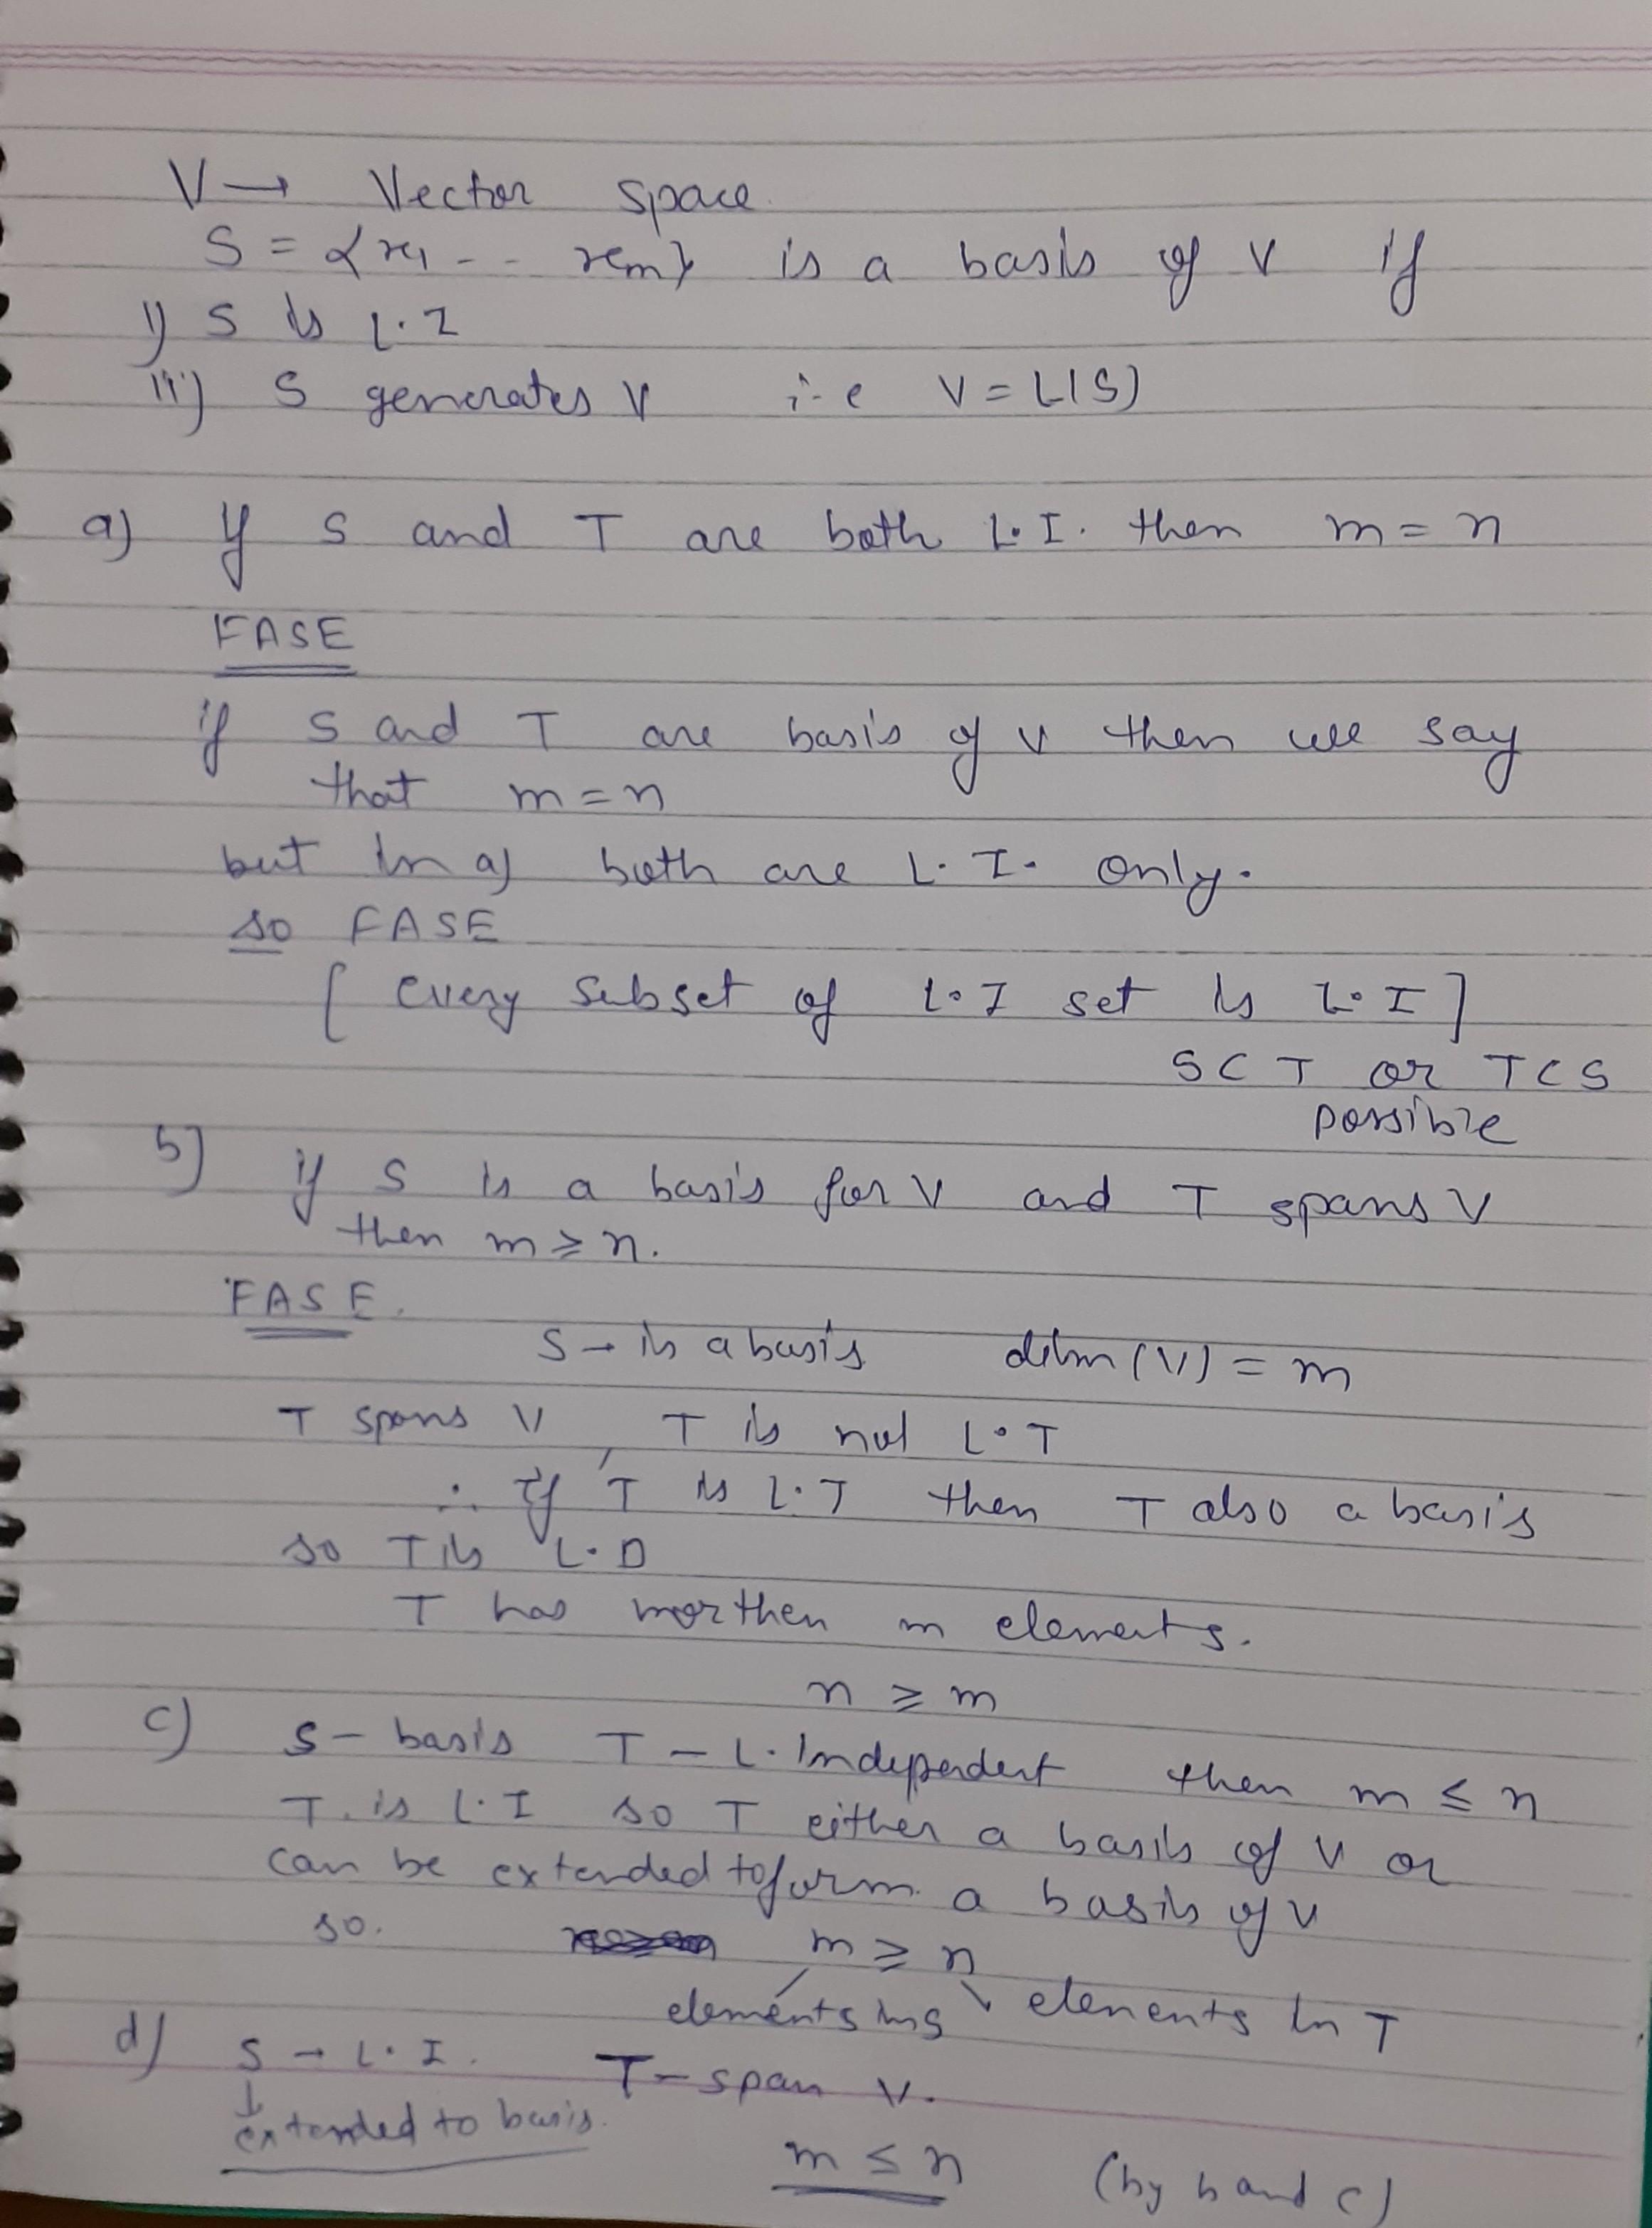 V → Vector space
S = {x1 - - xm} is a basis of V if
i) S is L.I
ii) S generates V i.e V = L(S)
a) If S and T are both L.I. then m = n
FASE
if S and T are basis of V then we say
that m = n
but in a) both are L.I. only.
so FASE
[ every subset of L.I set is L.I ]
S ⊂ T or T ⊂ S
possible
b) if S is a basis for V and T spans V
then m ≥ n.
FASE.
S → is a basis dim (V) = m
T spans V, T is not L.I
∴ If T is L.I then T also a basis
so T is L.D
T has morthen m elements.
n ≥ m
c) S - basis T - L. Independent then m ≤ n
T. is L.I so T either a basis of V or
can be extended to form a basis of V
so. m ≥ n
elements in S elements in T
d) S → L.I. T - span V.
↓
extended to basis.
m ≤ n (by b and c)